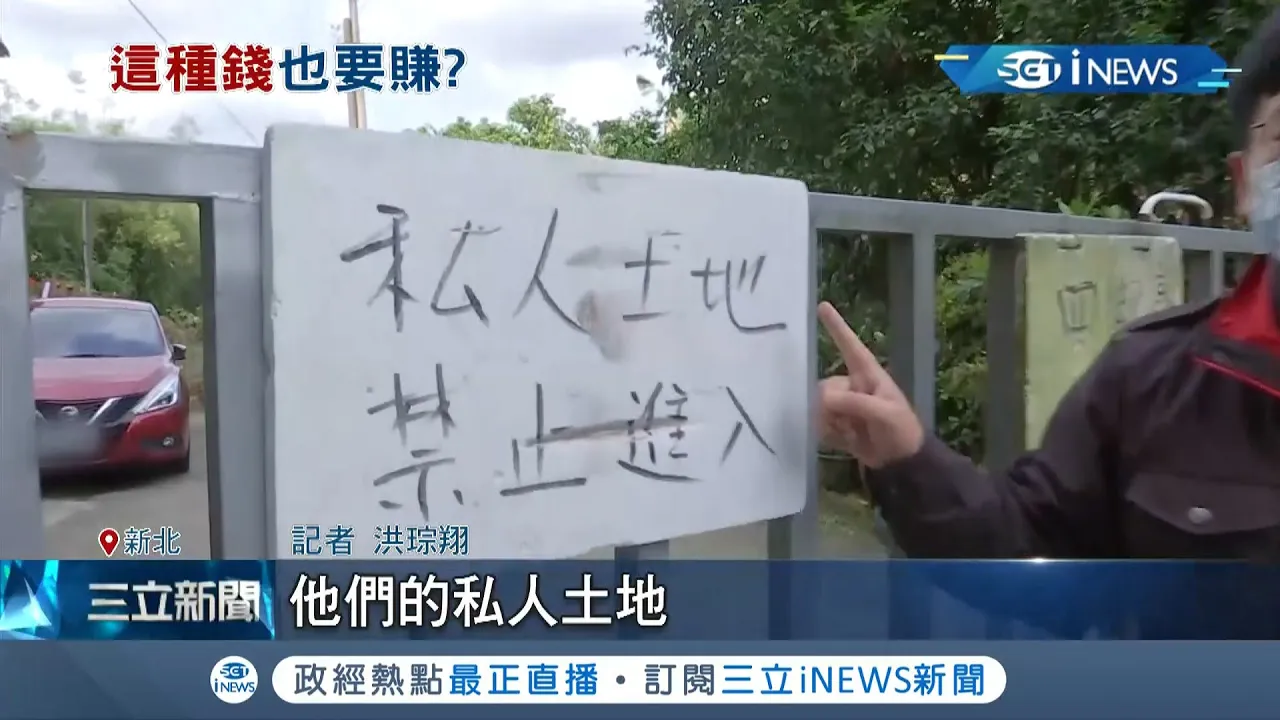 這種錢也要賺?
SET iNEWS
私人土地
禁止進入
新北
記者 洪琮翔
三立新聞
他們的私人土地
SET iNEWS
政經熱點最正直播・訂閱三立iNEWS新聞